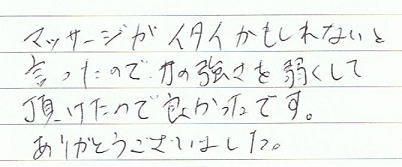 マッサージがイタイかもしれないと
言ったので力の強さを弱くして
頂けたので良かったです。
ありがとうございました。